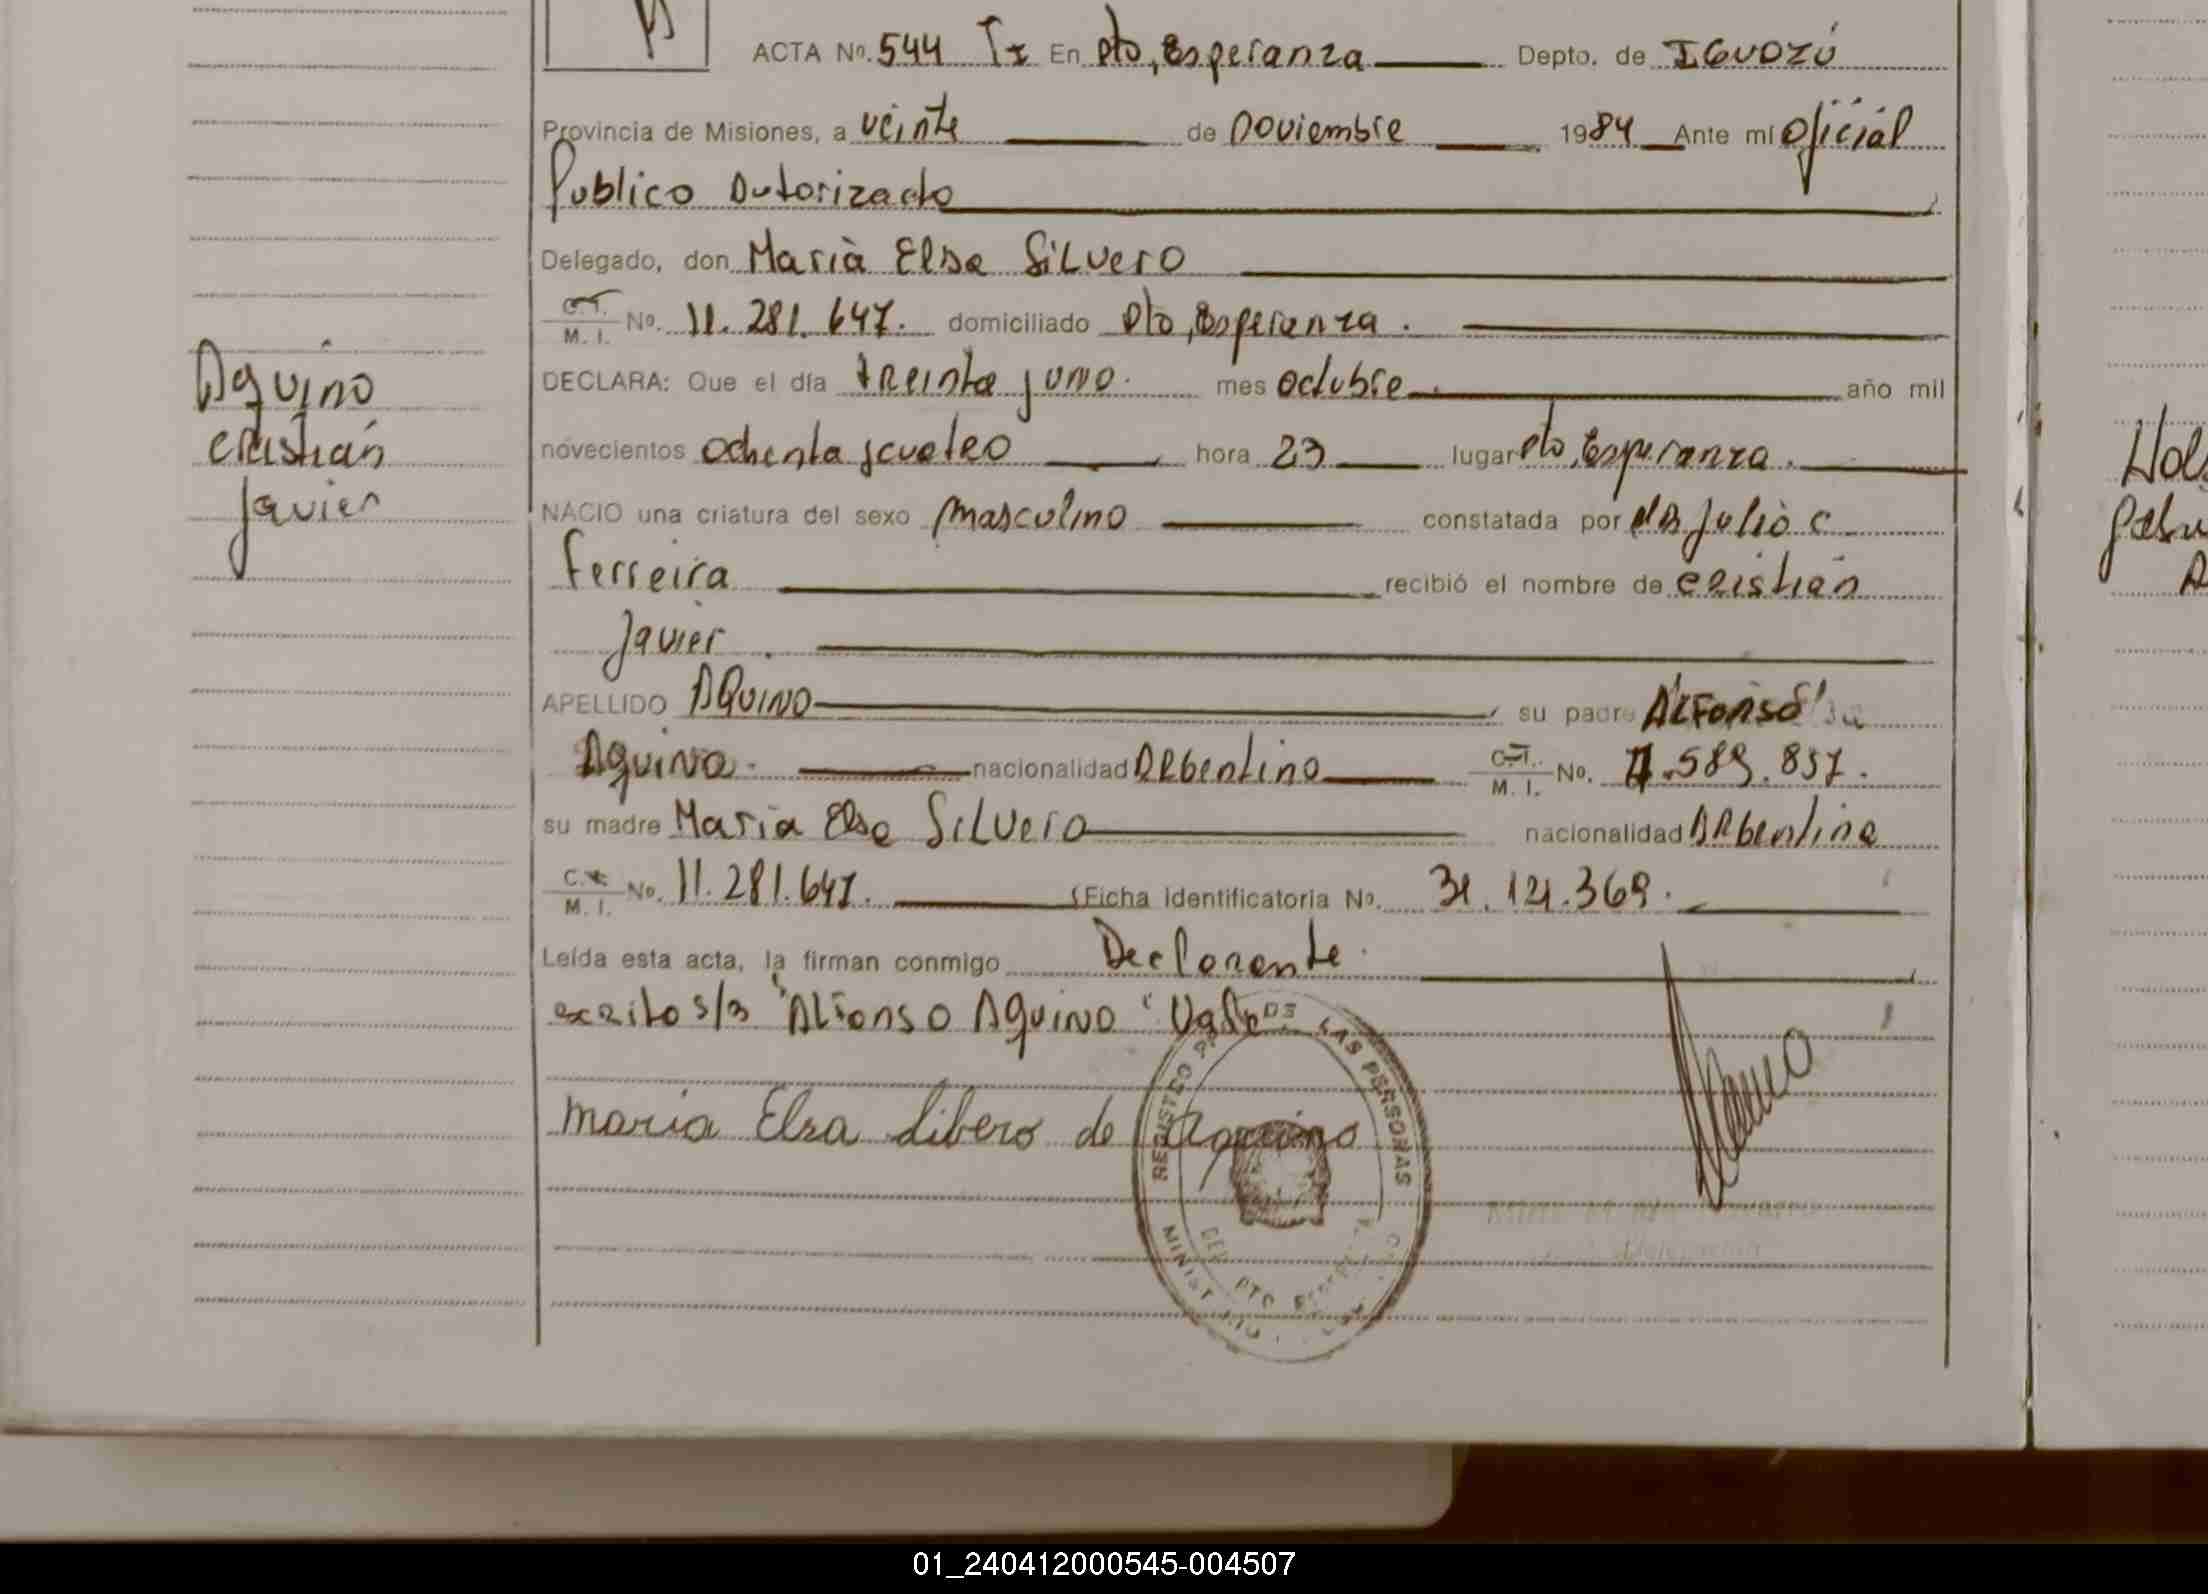 ACTA Nº. 544 Tº I En Pto, Esperanza Depto. de IGUAZÚ
Provincia de Misiones, a veinte de noviembre 1984 Ante mí oficial
Publico Autorizado
Delegado, don Maria Elsa Silvero
C.I. M. I. Nº. 11.281.647. domiciliado Pto, Esperanza.
DECLARA: Que el día treinta y uno. mes octubre. año mil
Aquino
novecientos ochenta y cuatro hora 23 lugar Pto, Esperanza.
Cristián
NACIO una criatura del sexo masculino constatada por dr Julio C
Javier
Ferreira recibió el nombre de Cristián
Javier.
APELLIDO AQUINO su padre ALFONSO
Aquino. nacionalidad Argentino C.I. M. I. Nº. 7.589.857.
su madre Maria Elsa Silvero nacionalidad Argentina
C.I. M. I. Nº. 11.281.647. Ficha Identificatoria Nº. 31.121.369.
Leída esta acta, la firman conmigo Declarante.
escrito s/r "Alfonso Aquino" Vale
maria Elsa Libero de Aquino
REGISTRO DE LAS PERSONAS
DEL. PTO.
01_240412000545-004507